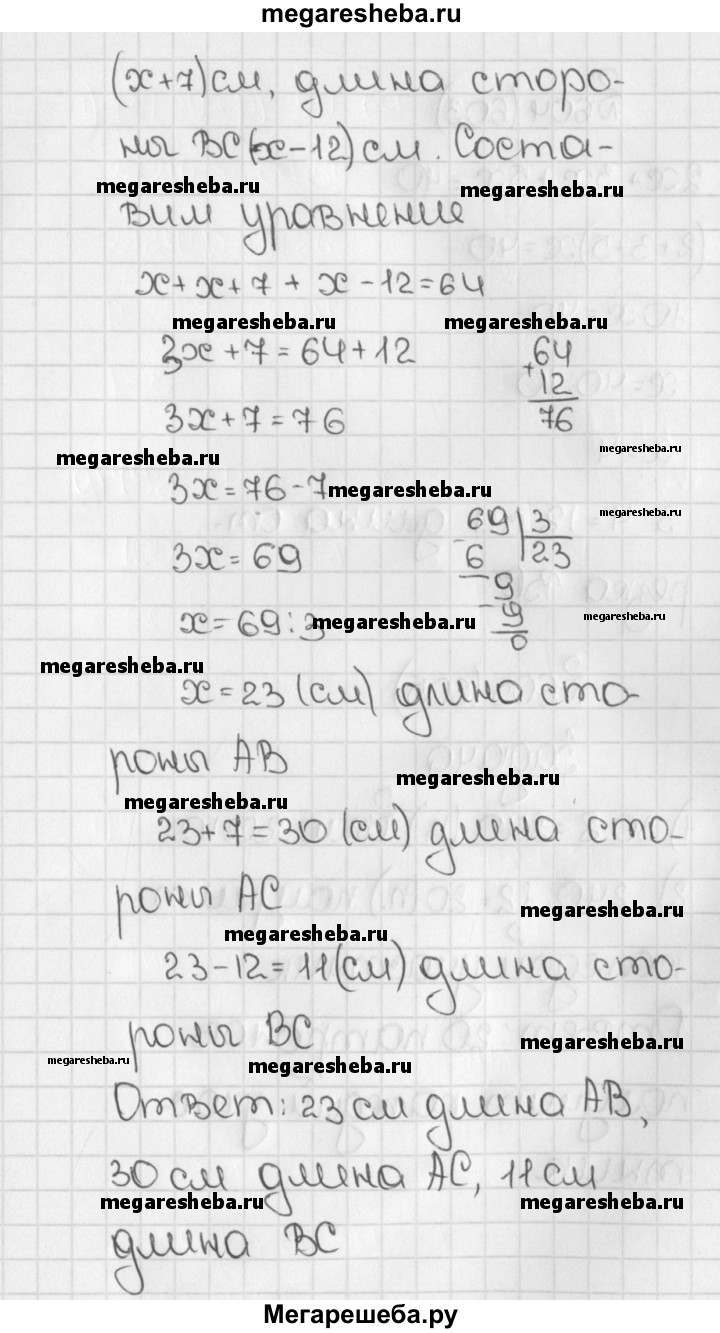 megaresheba.ru
(x+7)см, длина сторо-
ны ВС (x-12) см. Соста-
megaresheba.ru megaresheba.ru
вим уравнение
x+x+7+x-12=64
megaresheba.ru megaresheba.ru
3x+7=64+12
64
+
12
76
3x+7=76
megaresheba.ru megaresheba.ru
3x=76-7 megaresheba.ru
69 3
6 23
3x=69
9
9
0
x=69:3 megaresheba.ru megaresheba.ru
megaresheba.ru
x=23 (см) длина сто-
роны АВ
megaresheba.ru
megaresheba.ru
23+7=30 (см) длина сто-
роны АС
megaresheba.ru
megaresheba.ru
23-12=11(см) длина сто-
роны ВС
megaresheba.ru
megaresheba.ru megaresheba.ru
Ответ: 23 см длина АВ,
30 см длина АС, 11 см
megaresheba.ru megaresheba.ru
длина ВС
Мегарешеба.ру